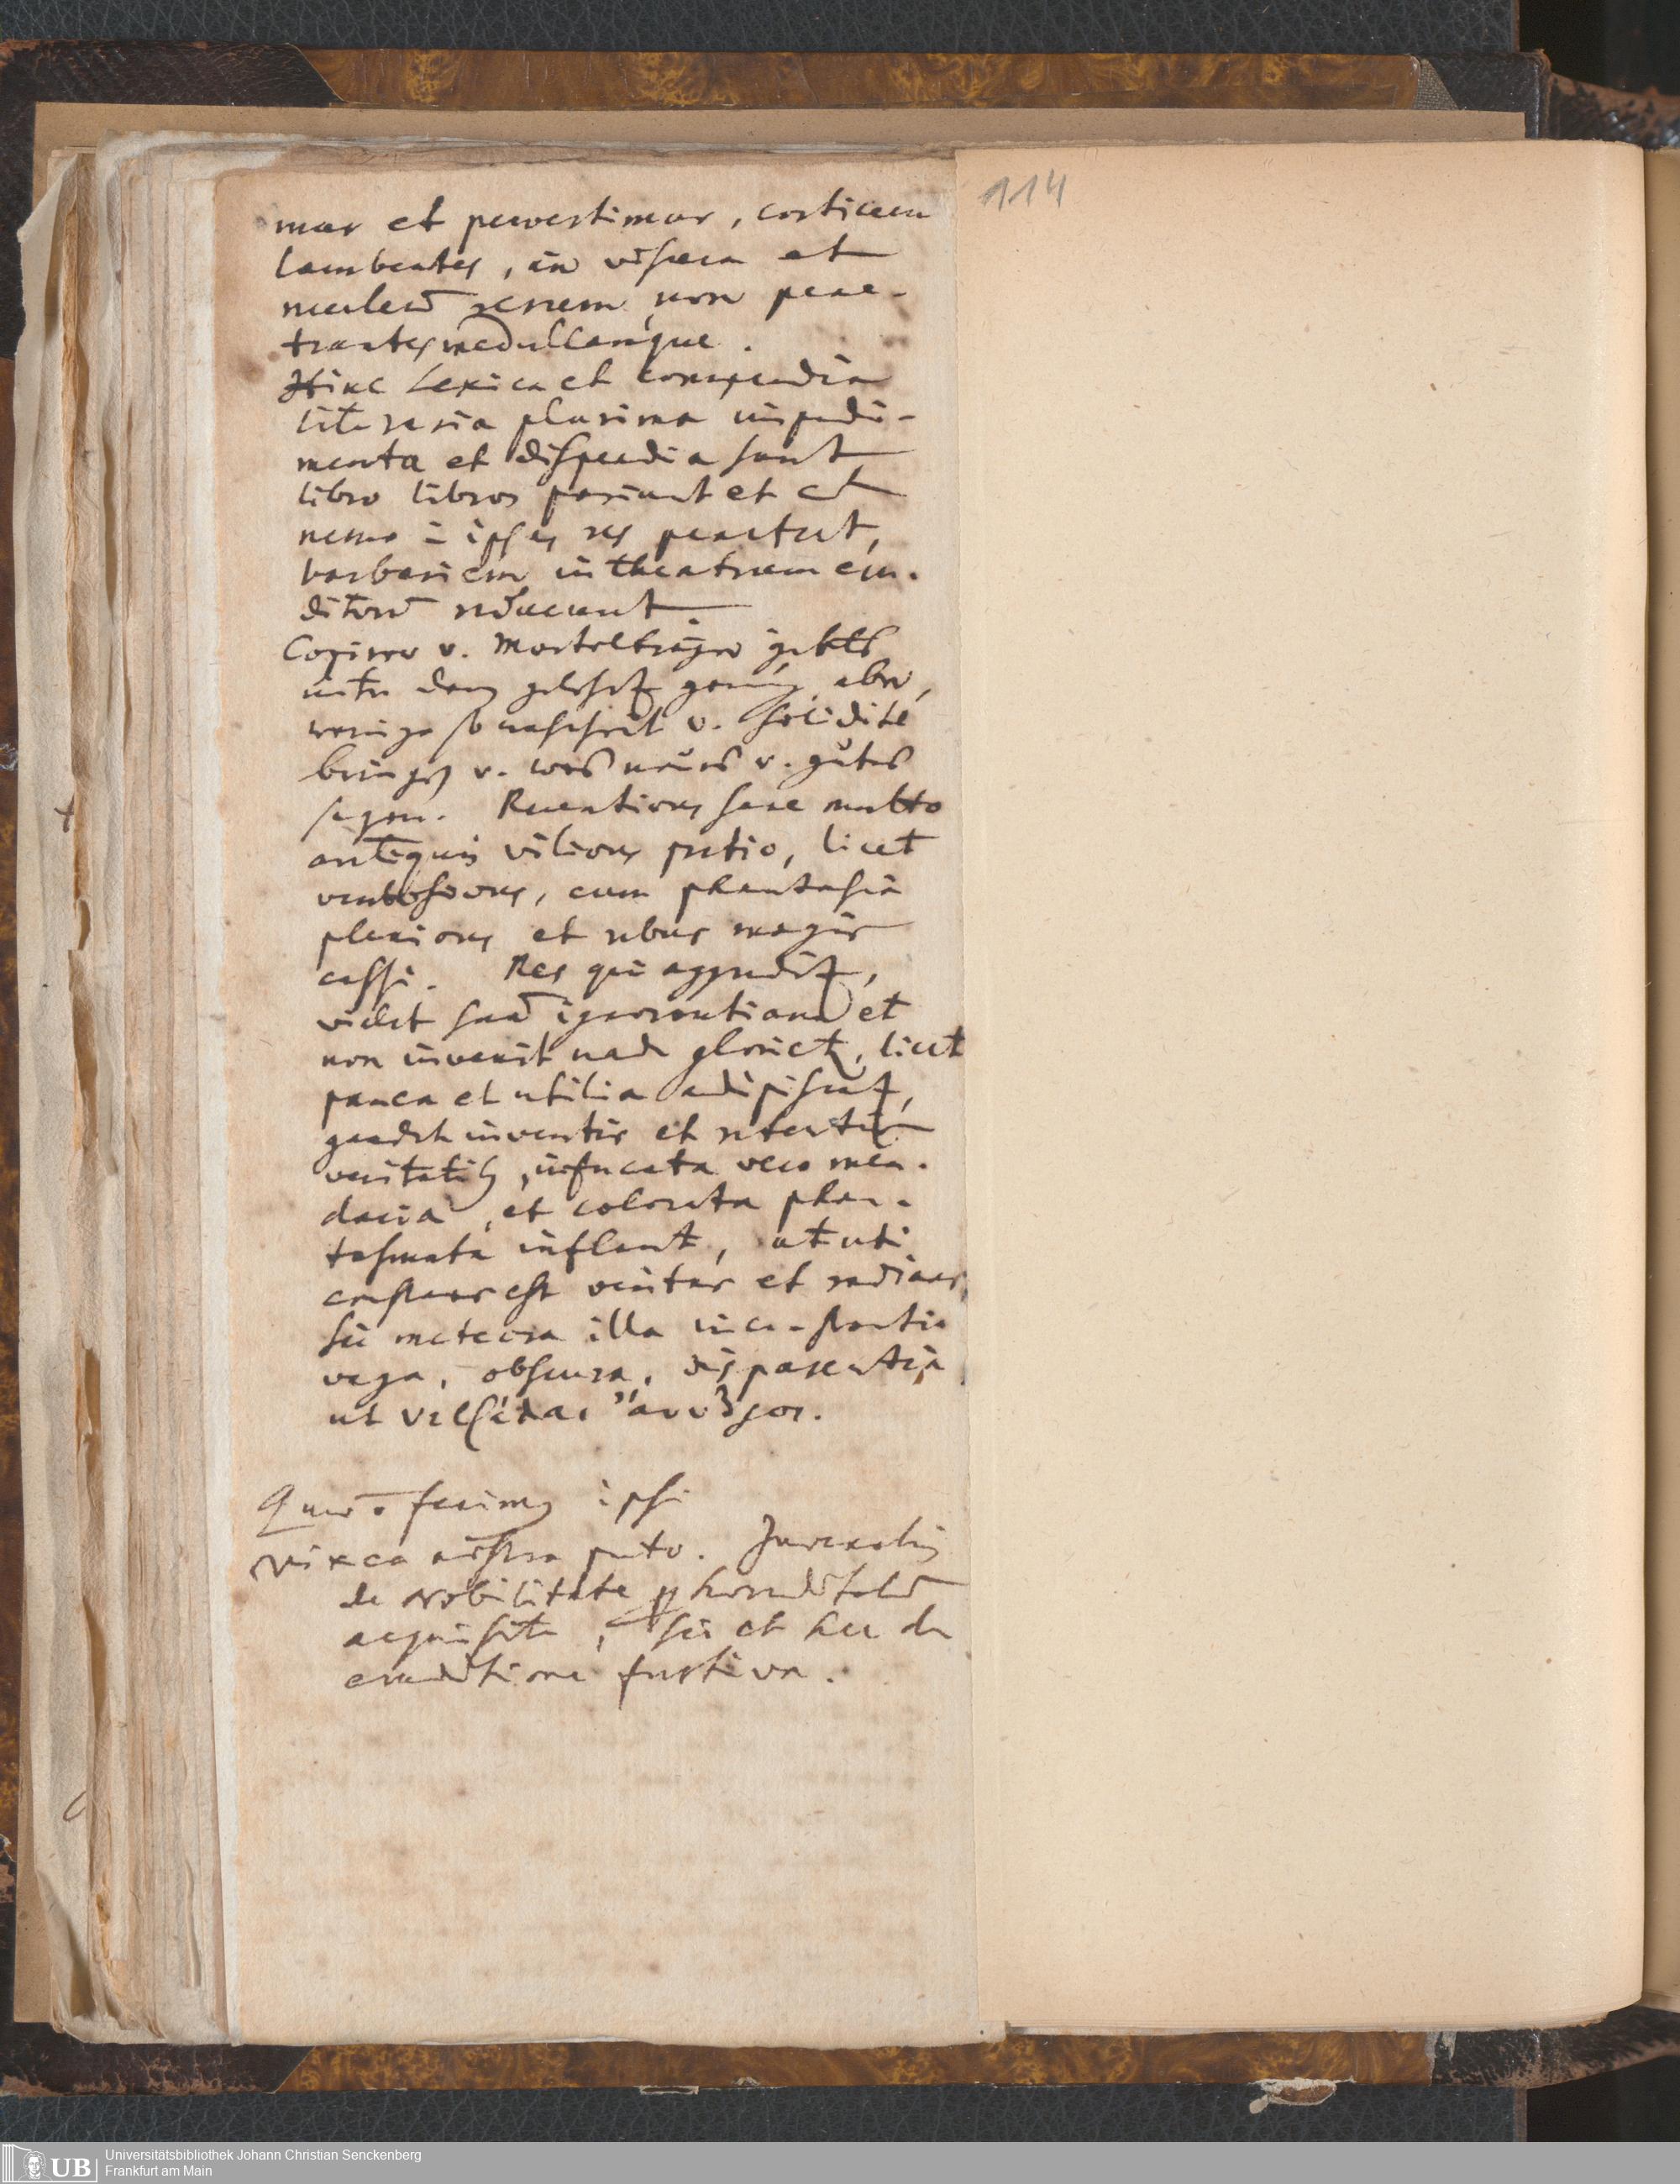 114
mur et pervertimur, corticem
lambentes, in viscera et
nucleum rerum non pene-
trantes medullamque.
Hinc Lexica et compendia
literaria plurima impedi-
menta et dispendia sunt
libro libros pariunt et cum
nemo in ipsas res penetret,
barbariem in theatrum eru-
ditorum reducunt
Copisten v. Mortelträger gibts
unter den gelehrten genug, aber
wenige so wahrheit v. solidité
bringen v. was neues v. gutes
sagen. Recentiores sane multo
antiquis viliores pretio, licet
ventosiores, cum phantasia
pleniores et rebus magis
cassi. Res qui aggreditur,
videt suam ignorantiam et
non invenit unde glorietur, licet
pauca et utilia adipiscatur,
gaudet inventis et
veritatis, infucata vero men-
dacia, et colorata phan-
tasmata inflant, ut uti
constans est veritas et radians,
sic meteora illa inconstantia
vaga, obscura, disparentia
ut
Quae non fecimus ipsi
vix ea nostra puto. Juvenalis
de Nobilitate per hereditatem
acquisita, sic et hic de
eruditione furtiva.
Universitätsbibliothek Johann Christian Senckenberg
Frankfurt am Main
UB